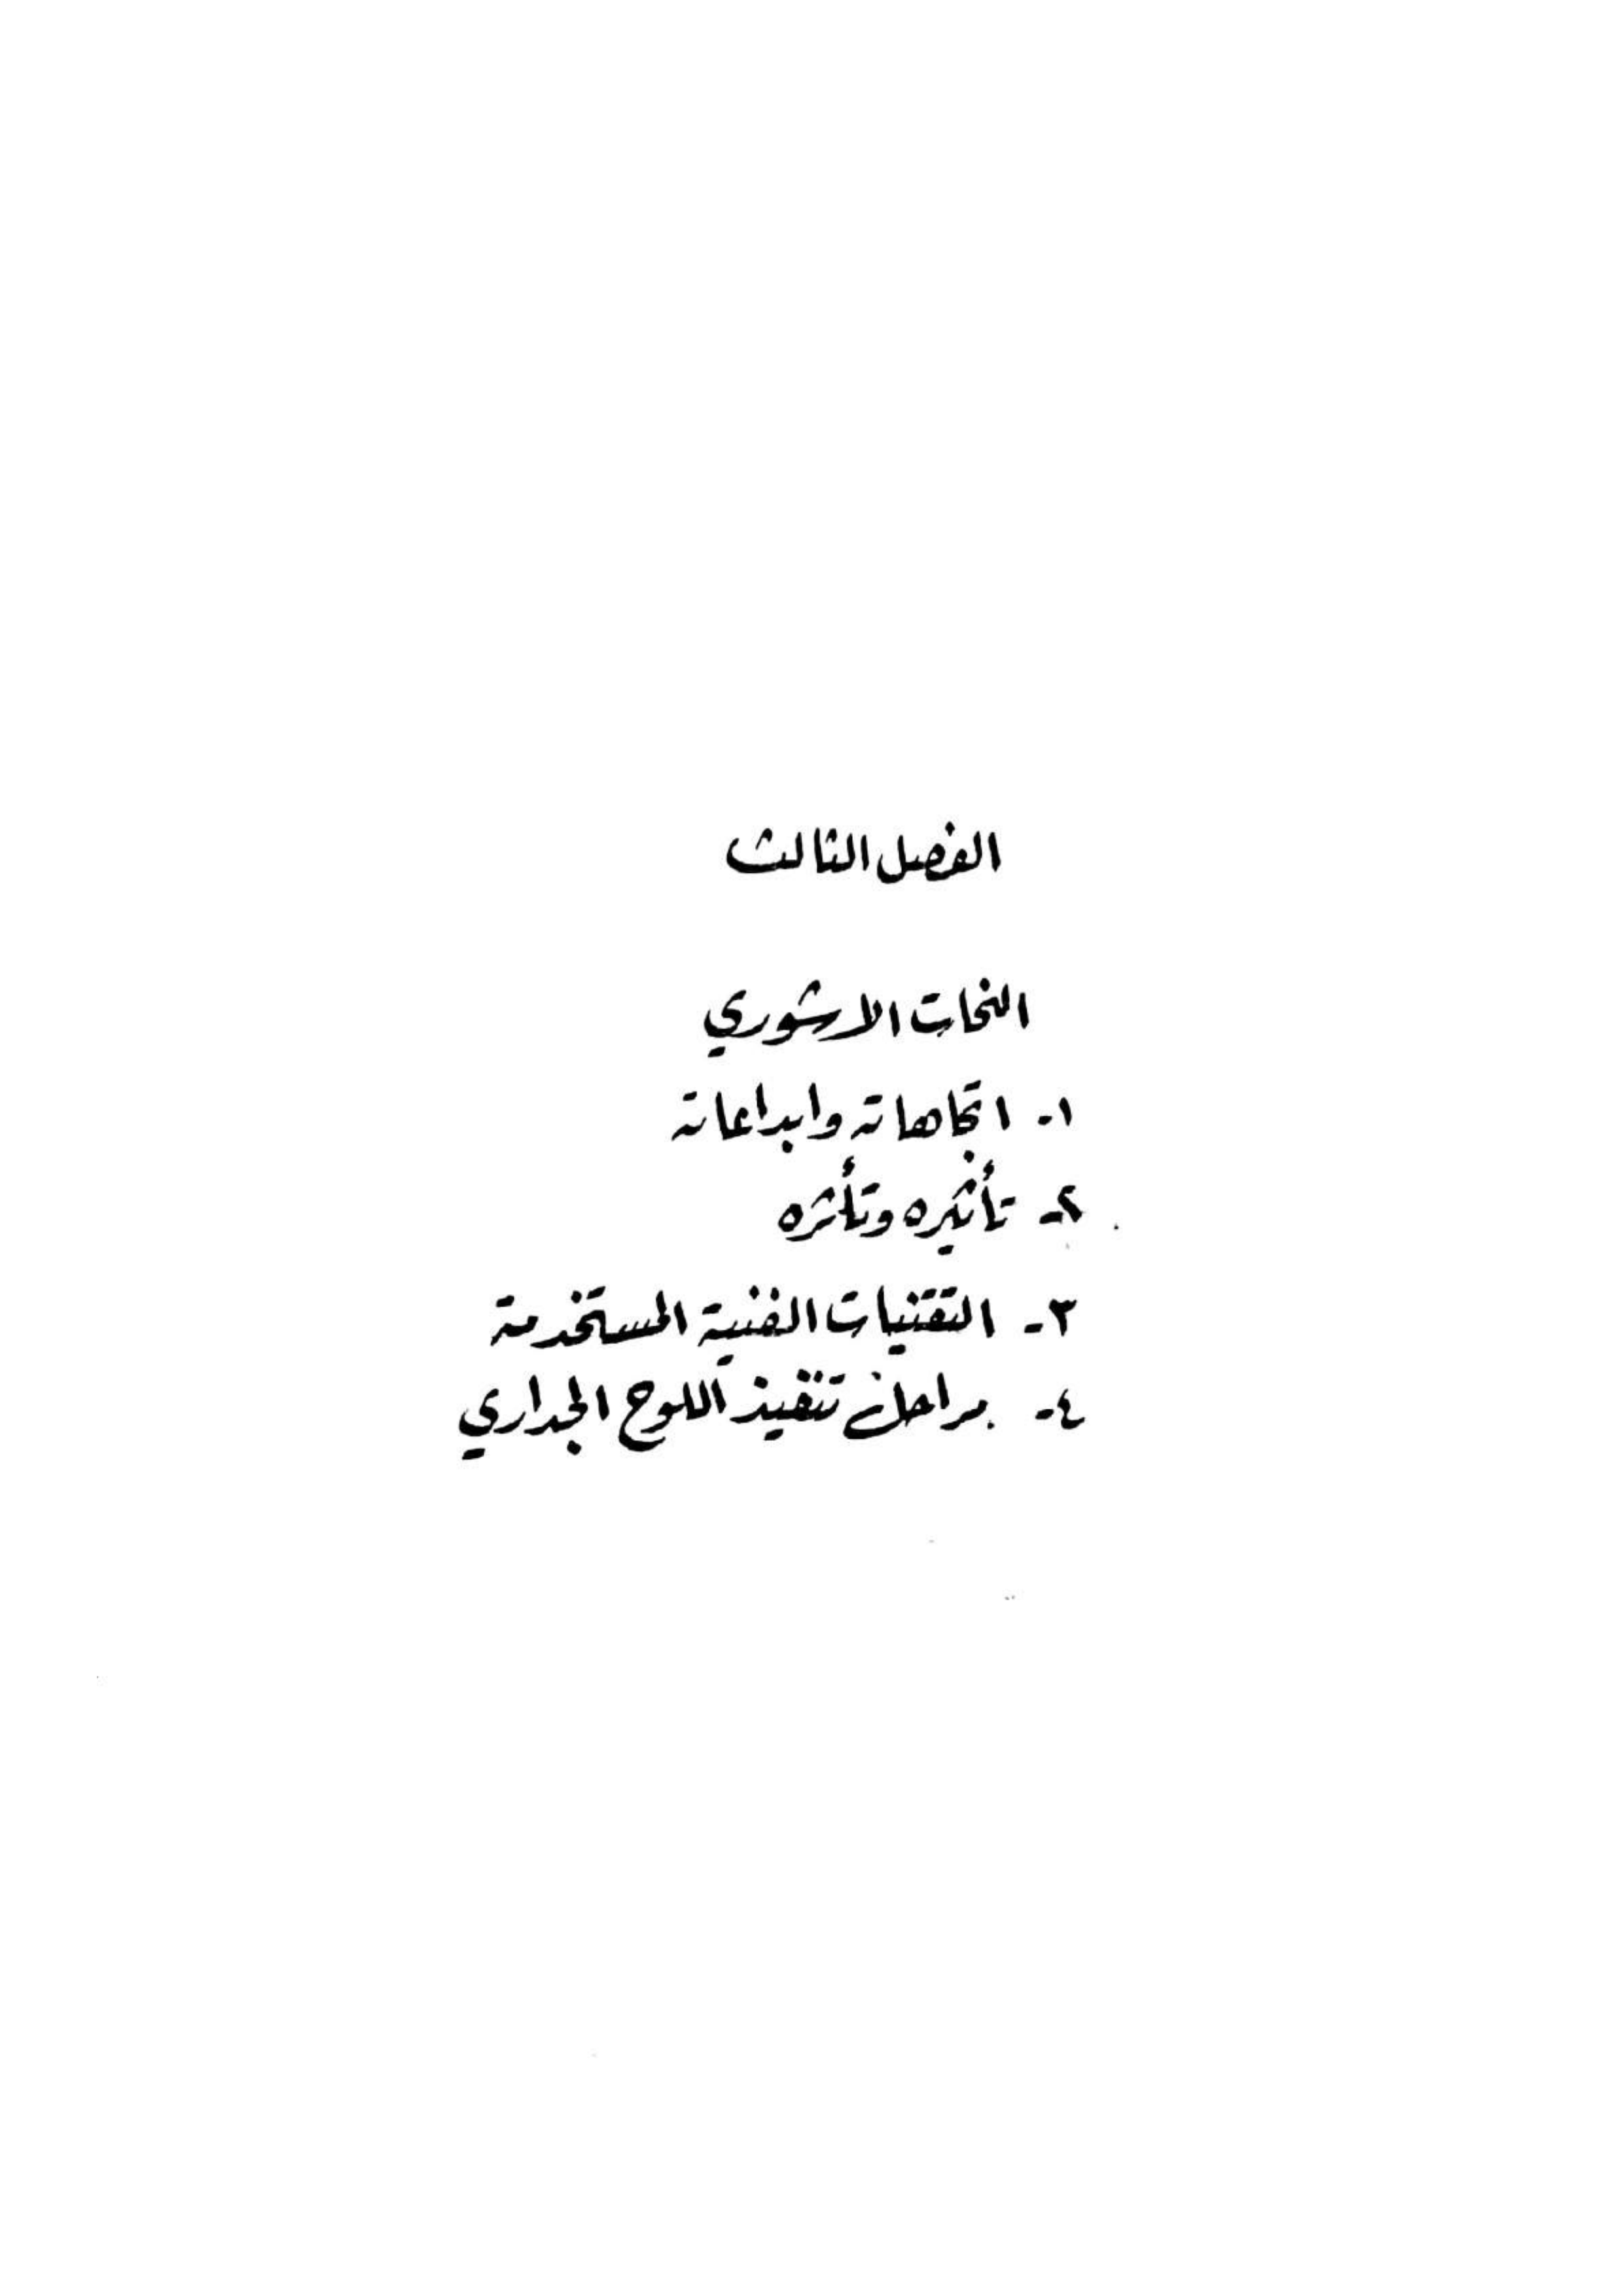 الفصل الثالث
النحات الاشوري
١- اتجاهاته وابداعاته
٢- تأثيره وتأثره
٣- التقنيات الفنية المستخدمة
٤- مراحل تنفيذ اللوح الجداري